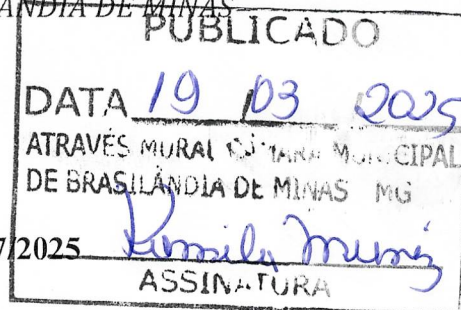 ANDIA DE MINAS
PUBLICADO
DATA 19 / 03 / 2025
ATRAVÉS MURAL CÂMARA MUNICIPAL
DE BRASILÂNDIA DE MINAS MG
7/2025 Kamila Muniz
ASSINATURA